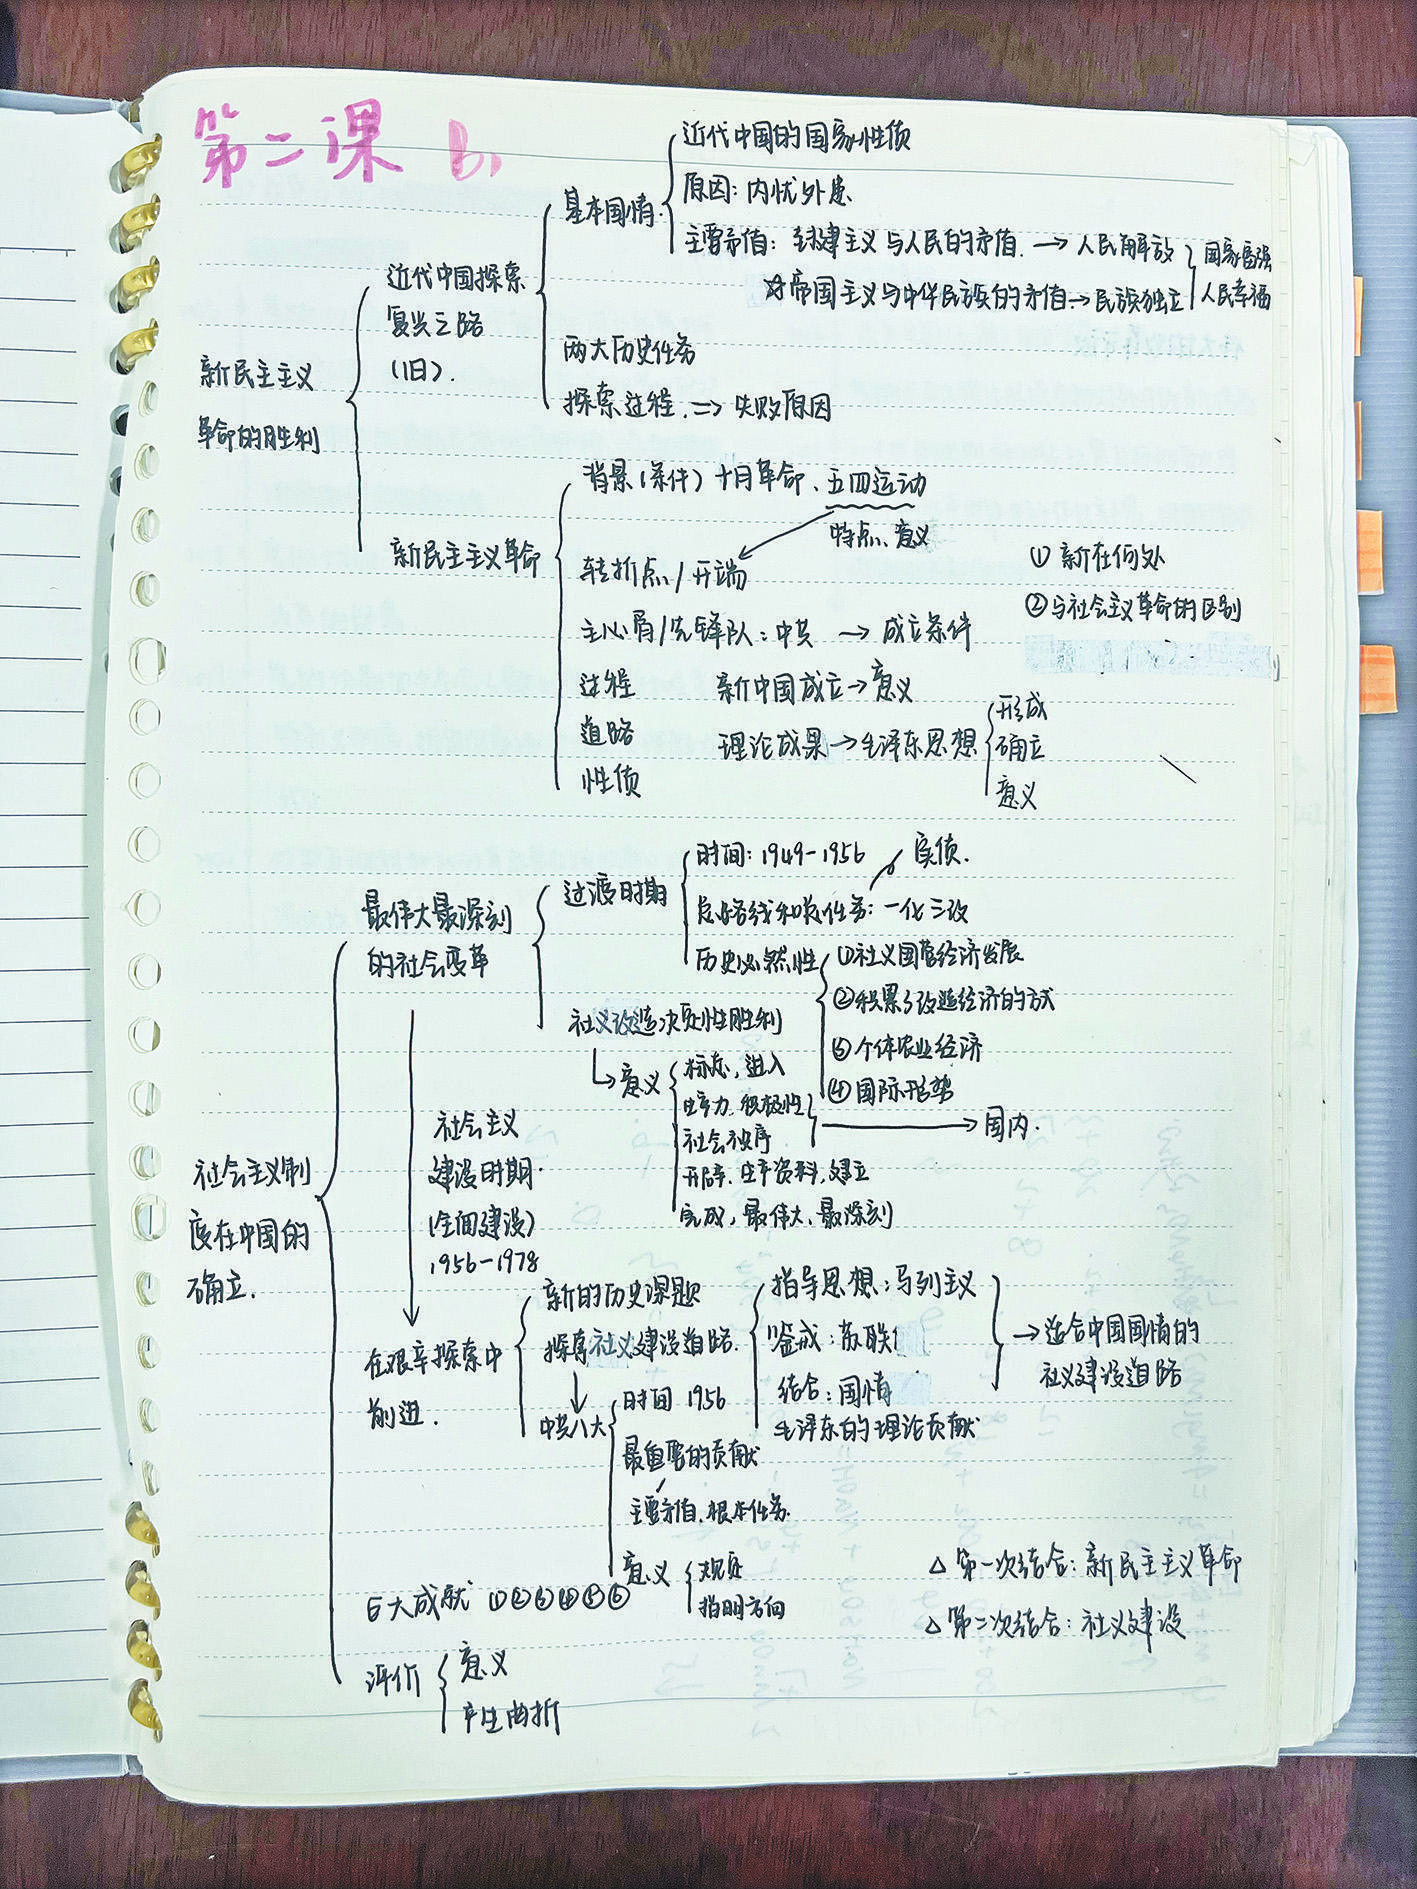 第二课 B1
近代中国的国家性质
基本国情
原因：内忧外患
主要矛盾：封建主义与人民的矛盾 → 人民解放
☆帝国主义与中华民族的矛盾 → 民族独立
国家富强
人民幸福
近代中国探索
复兴之路
（旧）.
两大历史任务
探索过程. => 失败原因
新民主主义
革命的胜利
新民主主义革命
背景（条件）十月革命、五四运动
特点、意义
转折点/开端
主心骨/先锋队：中共 → 成立条件
① 新在何处
②与社会主义革命的区别
过程
新中国成立→意义
道路
理论成果→毛泽东思想
形成
确立
意义
性质
最伟大最深刻
的社会变革
过渡时期
时间：1949-1956
实质.
总路线和总任务：一化三改
历史必然性
①社义国营经济发展
②积累了改造经济的方式
③个体农业经济
④国际形势
社义改造决定性胜利
意义
标志，进入
生产力、积极性
社会秩序
→ 国内.
开辟、生产资料，建立
完成，最伟大、最深刻
社会主义
建设时期.
（全面建设）
1956-1978
社会主义制
度在中国的
确立.
在艰辛探索中
前进.
新的历史课题
探索社义建设道路.
指导思想：马列主义
鉴戒：苏联
结合：国情
毛泽东的理论贡献
→适合中国国情的
社义建设道路
中共八大
时间 1956
最重要的贡献
主要矛盾、根本任务
意义
规定
指明方向
6大成就 ①②③④⑤⑥
△ 第一次结合：新民主主义革命
△ 第二次结合：社义建设
评价
意义
产生曲折